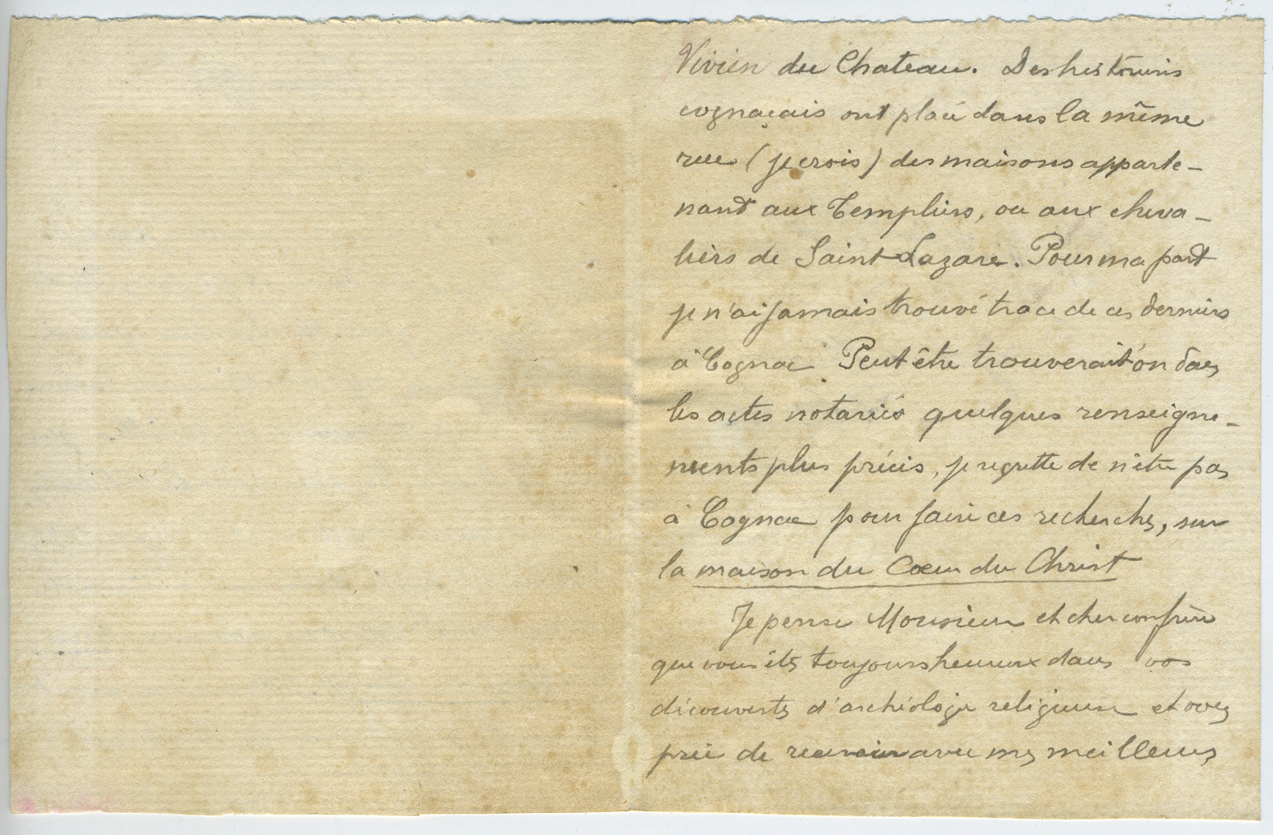 Vivien du Chateau. Des historiens
cognaçais ont placé dans la même
rue (je crois) des maisons apparte-
nant aux Templiers, ou aux cheva-
liers de Saint Lazare. Pour ma part
je n'ai jamais trouvé trace de ces derniers
à Cognac Peut être trouverait'on dans
les actes notariés quelques renseigne-
ments plus précis, je regrette de n'être pas
à Cognac pour faire ces recherches, sur
la maison du Coeur du Christ
Je pense Monsieur et cher confrère
que vous êtes toujours heureux dans vos
découvertes d'archéologie religieuse et vous
prie de recevoir avec mes meilleurs